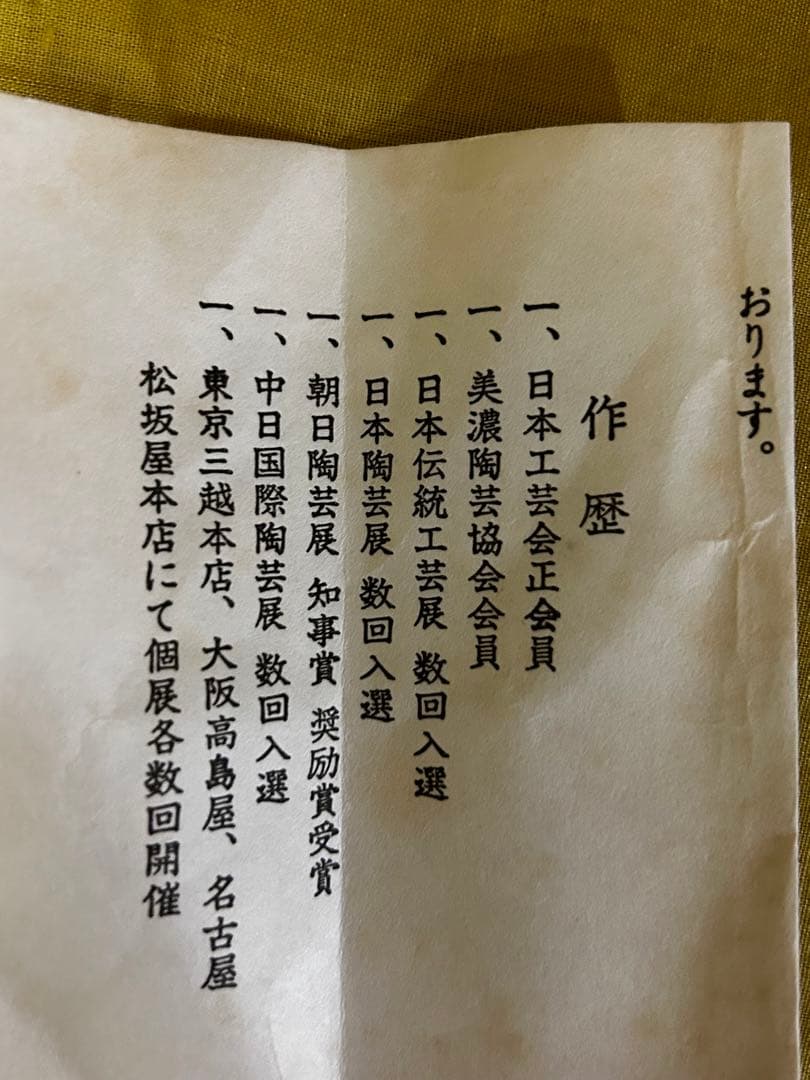 おります。
作歴
一、日本工芸会正会員
一、美濃陶芸協会会員
一、日本伝統工芸展 数回入選
一、日本陶芸展 数回入選
一、朝日陶芸展 知事賞 奨励賞受賞
一、中日国際陶芸展 数回入選
一、東京三越本店、大阪高島屋、名古屋
松坂屋本店にて個展各数回開催